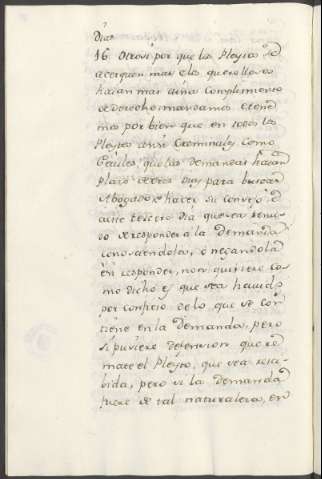 Dias
16 Otrosi por que los Pleytos se
acerquen mas e los querellosos
haian mas aina Complimiento
de derecho: mandamos e tene
mos por bien que en todos los
Pleytos ansi Creminales como
Ceviles, que las demandas haian
Plazo de tres Dias para buscar
Abogado e hacer su consejo, e
al tercero dia que sea tenu
do de responder a la demanda
conosciendola, o negandola
en responder, non quisiere co
mo dicho es que sea havido
por confieso de lo que se con
tiene en la demanda, pero
si pusiere defension que re
mate el Pleyto, que sea resci-
bida, pero si la demanda
fuere de tal naturaleza, en